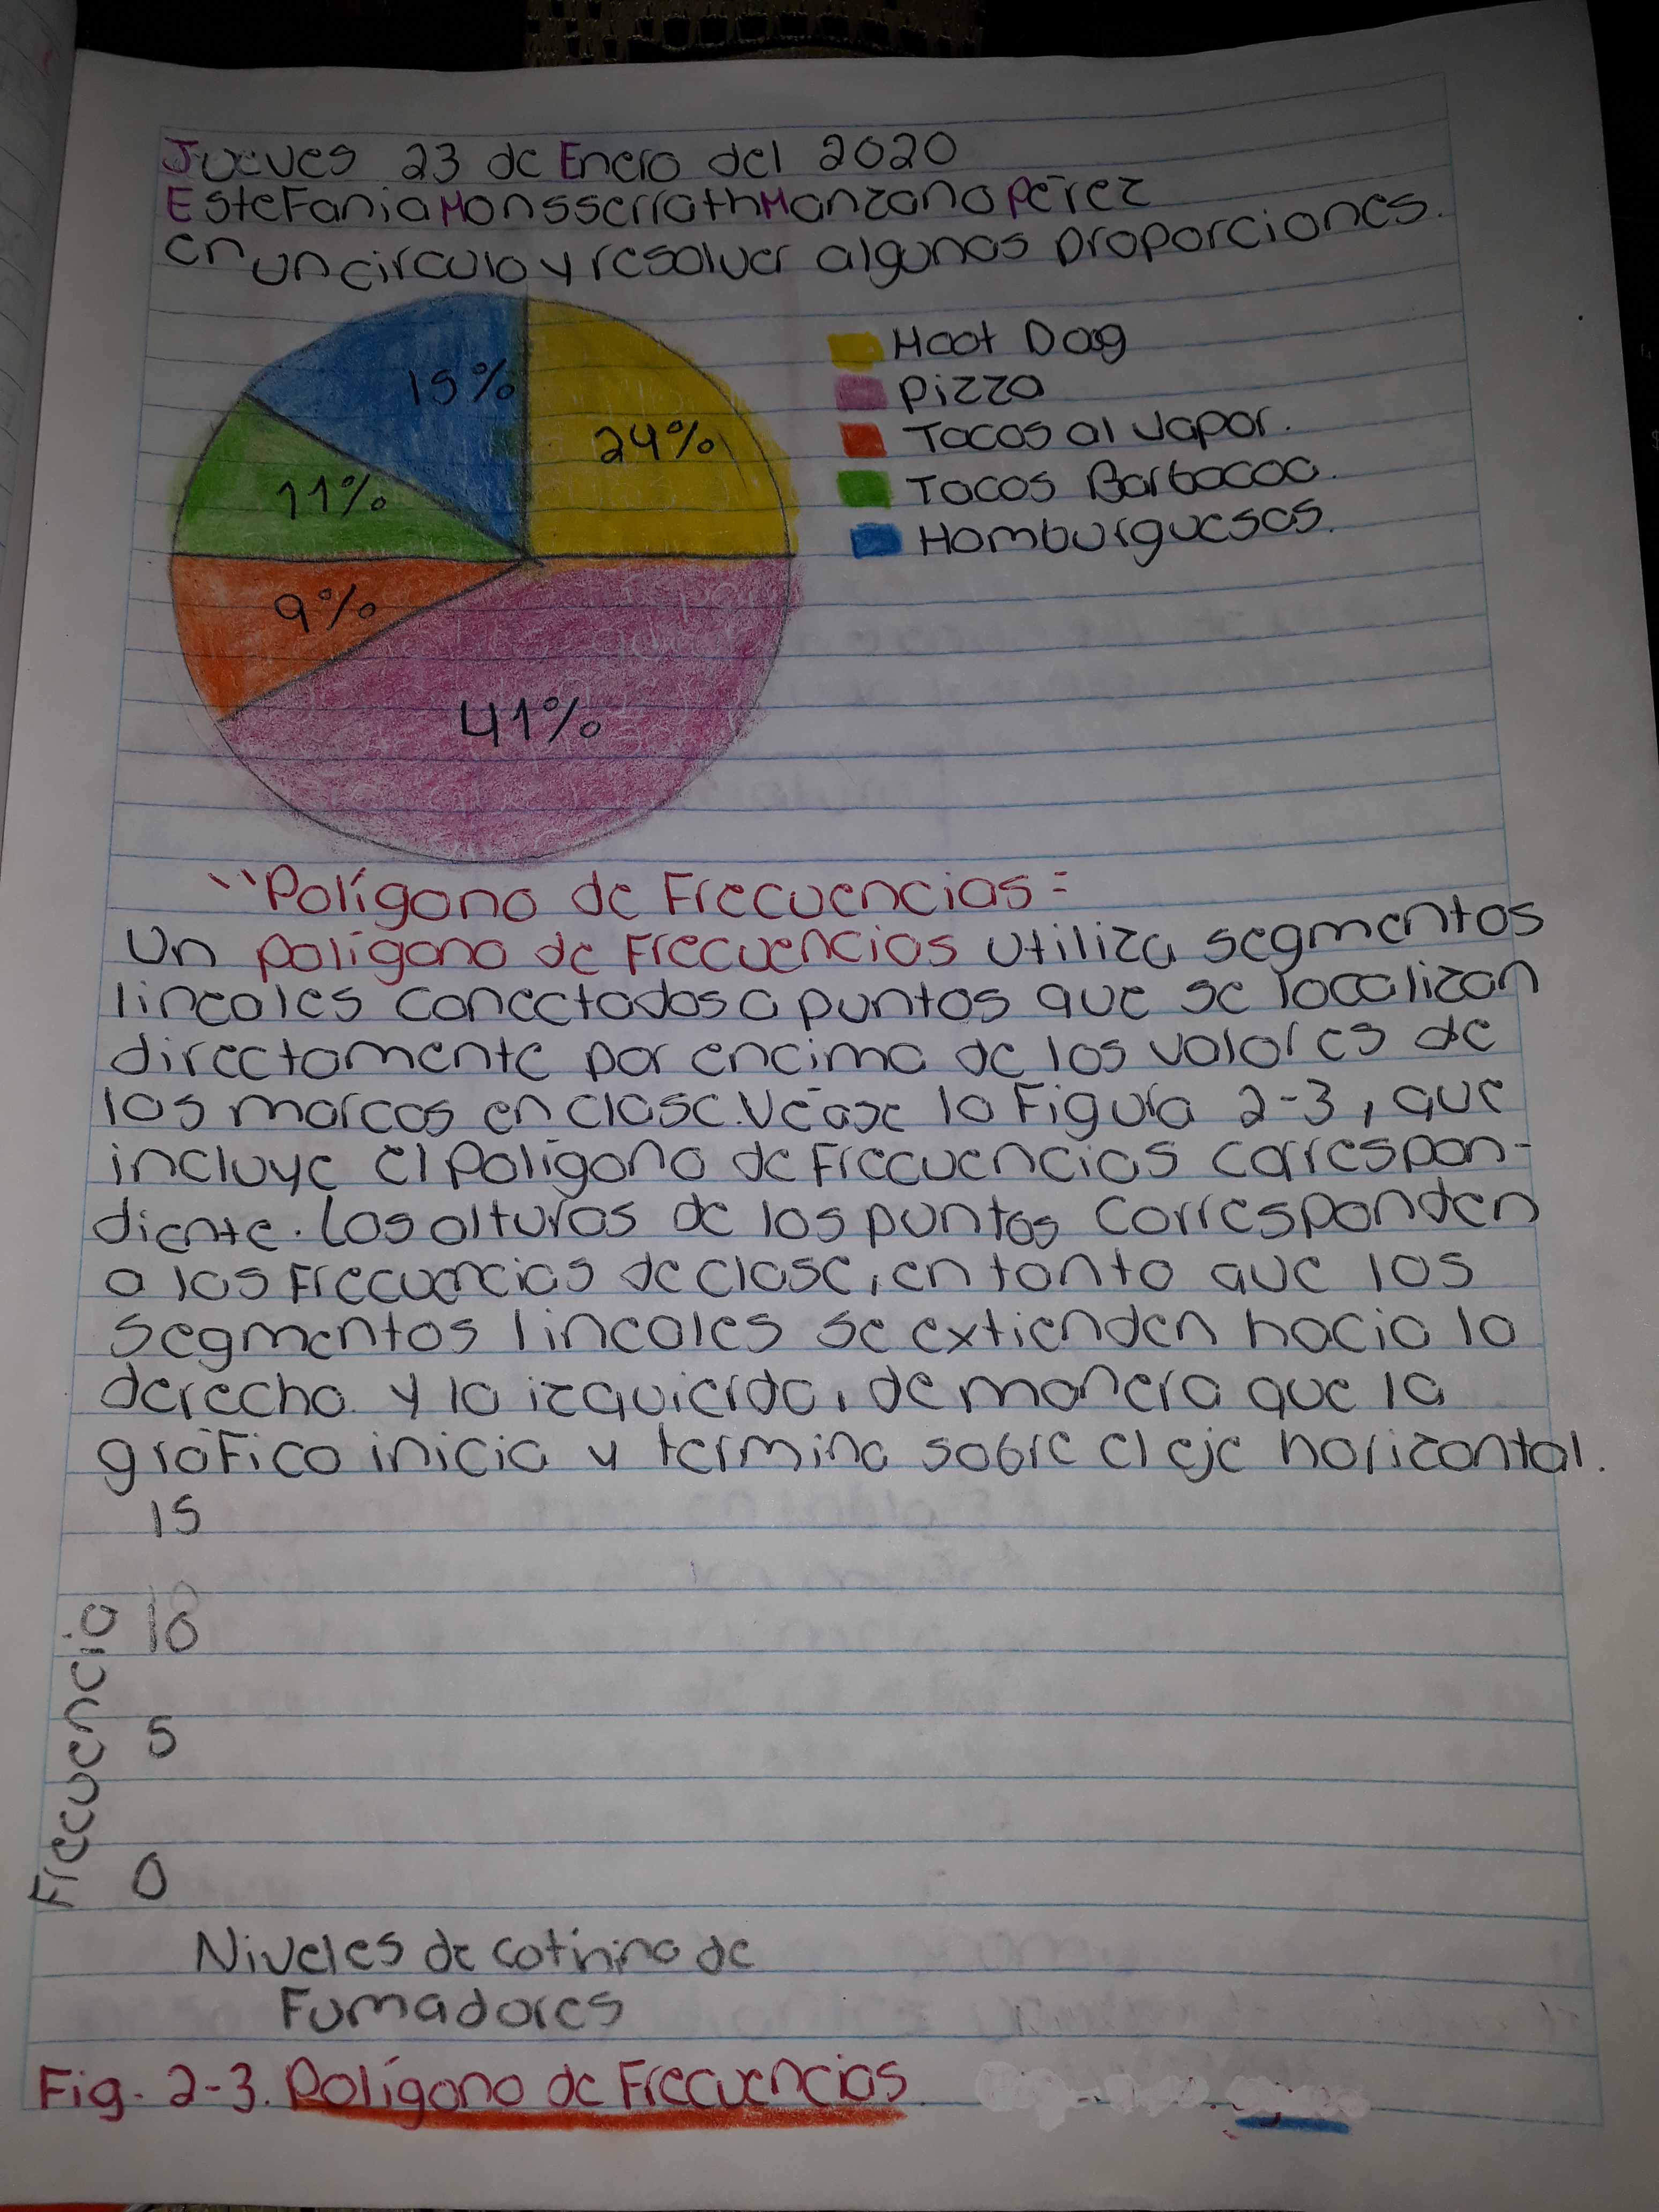 Jueves 23 de Enero del 2020
Estefania Monsserrath Manzano Pérez
en un circulo y resolver algunas proporciones.
15%
24%
11%
9%
41%
Hoot Dog
Pizza
Tacos al Vapor.
Tacos Barbacoa.
Hamburguesas.
"Polígono de Frecuencias=
Un polígono de Frecuencias utiliza segmentos
lineales conectados a puntos que se localizan
directamente por encima de los valores de
las marcas en clase. Véase la Figura 2-3, que
incluye el Polígono de Frecuencias correspon-
diente. Las alturas de los puntos corresponden
a las Frecuencias de clase, en tanto que los
segmentos lineales se extienden hacia la
derecha y la izquierda, de manera que la
gráfica inicia y termina sobre el eje horizontal.
15
10
5
0
Frecuencia
Niveles de cotinina de
Fumadores
Fig. 2-3. Polígono de Frecuencias.